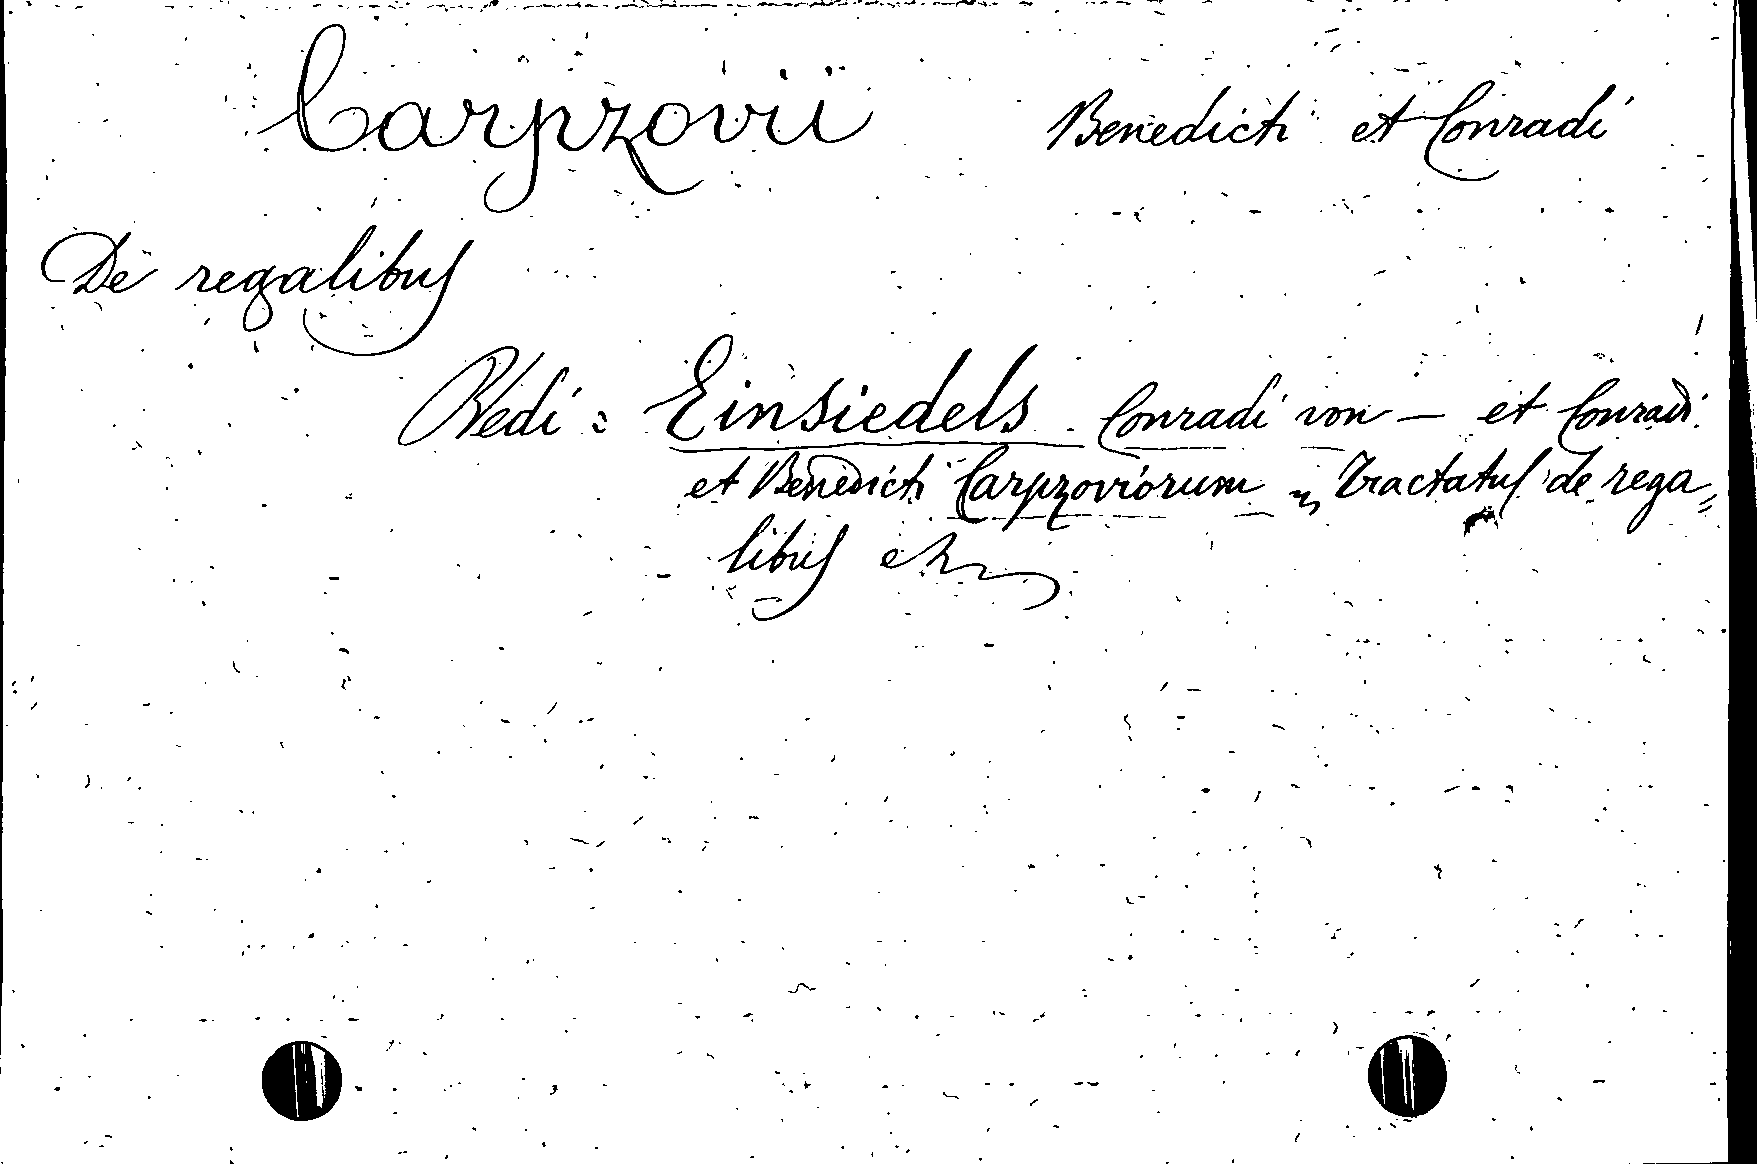 Carpzovii Benedicti et Conradi
De regalibus
Vedi: Einsiedels Conradi von — et Conradi
et Benedicti Carpzoviorum „ Tractatus de rega„
libus etc